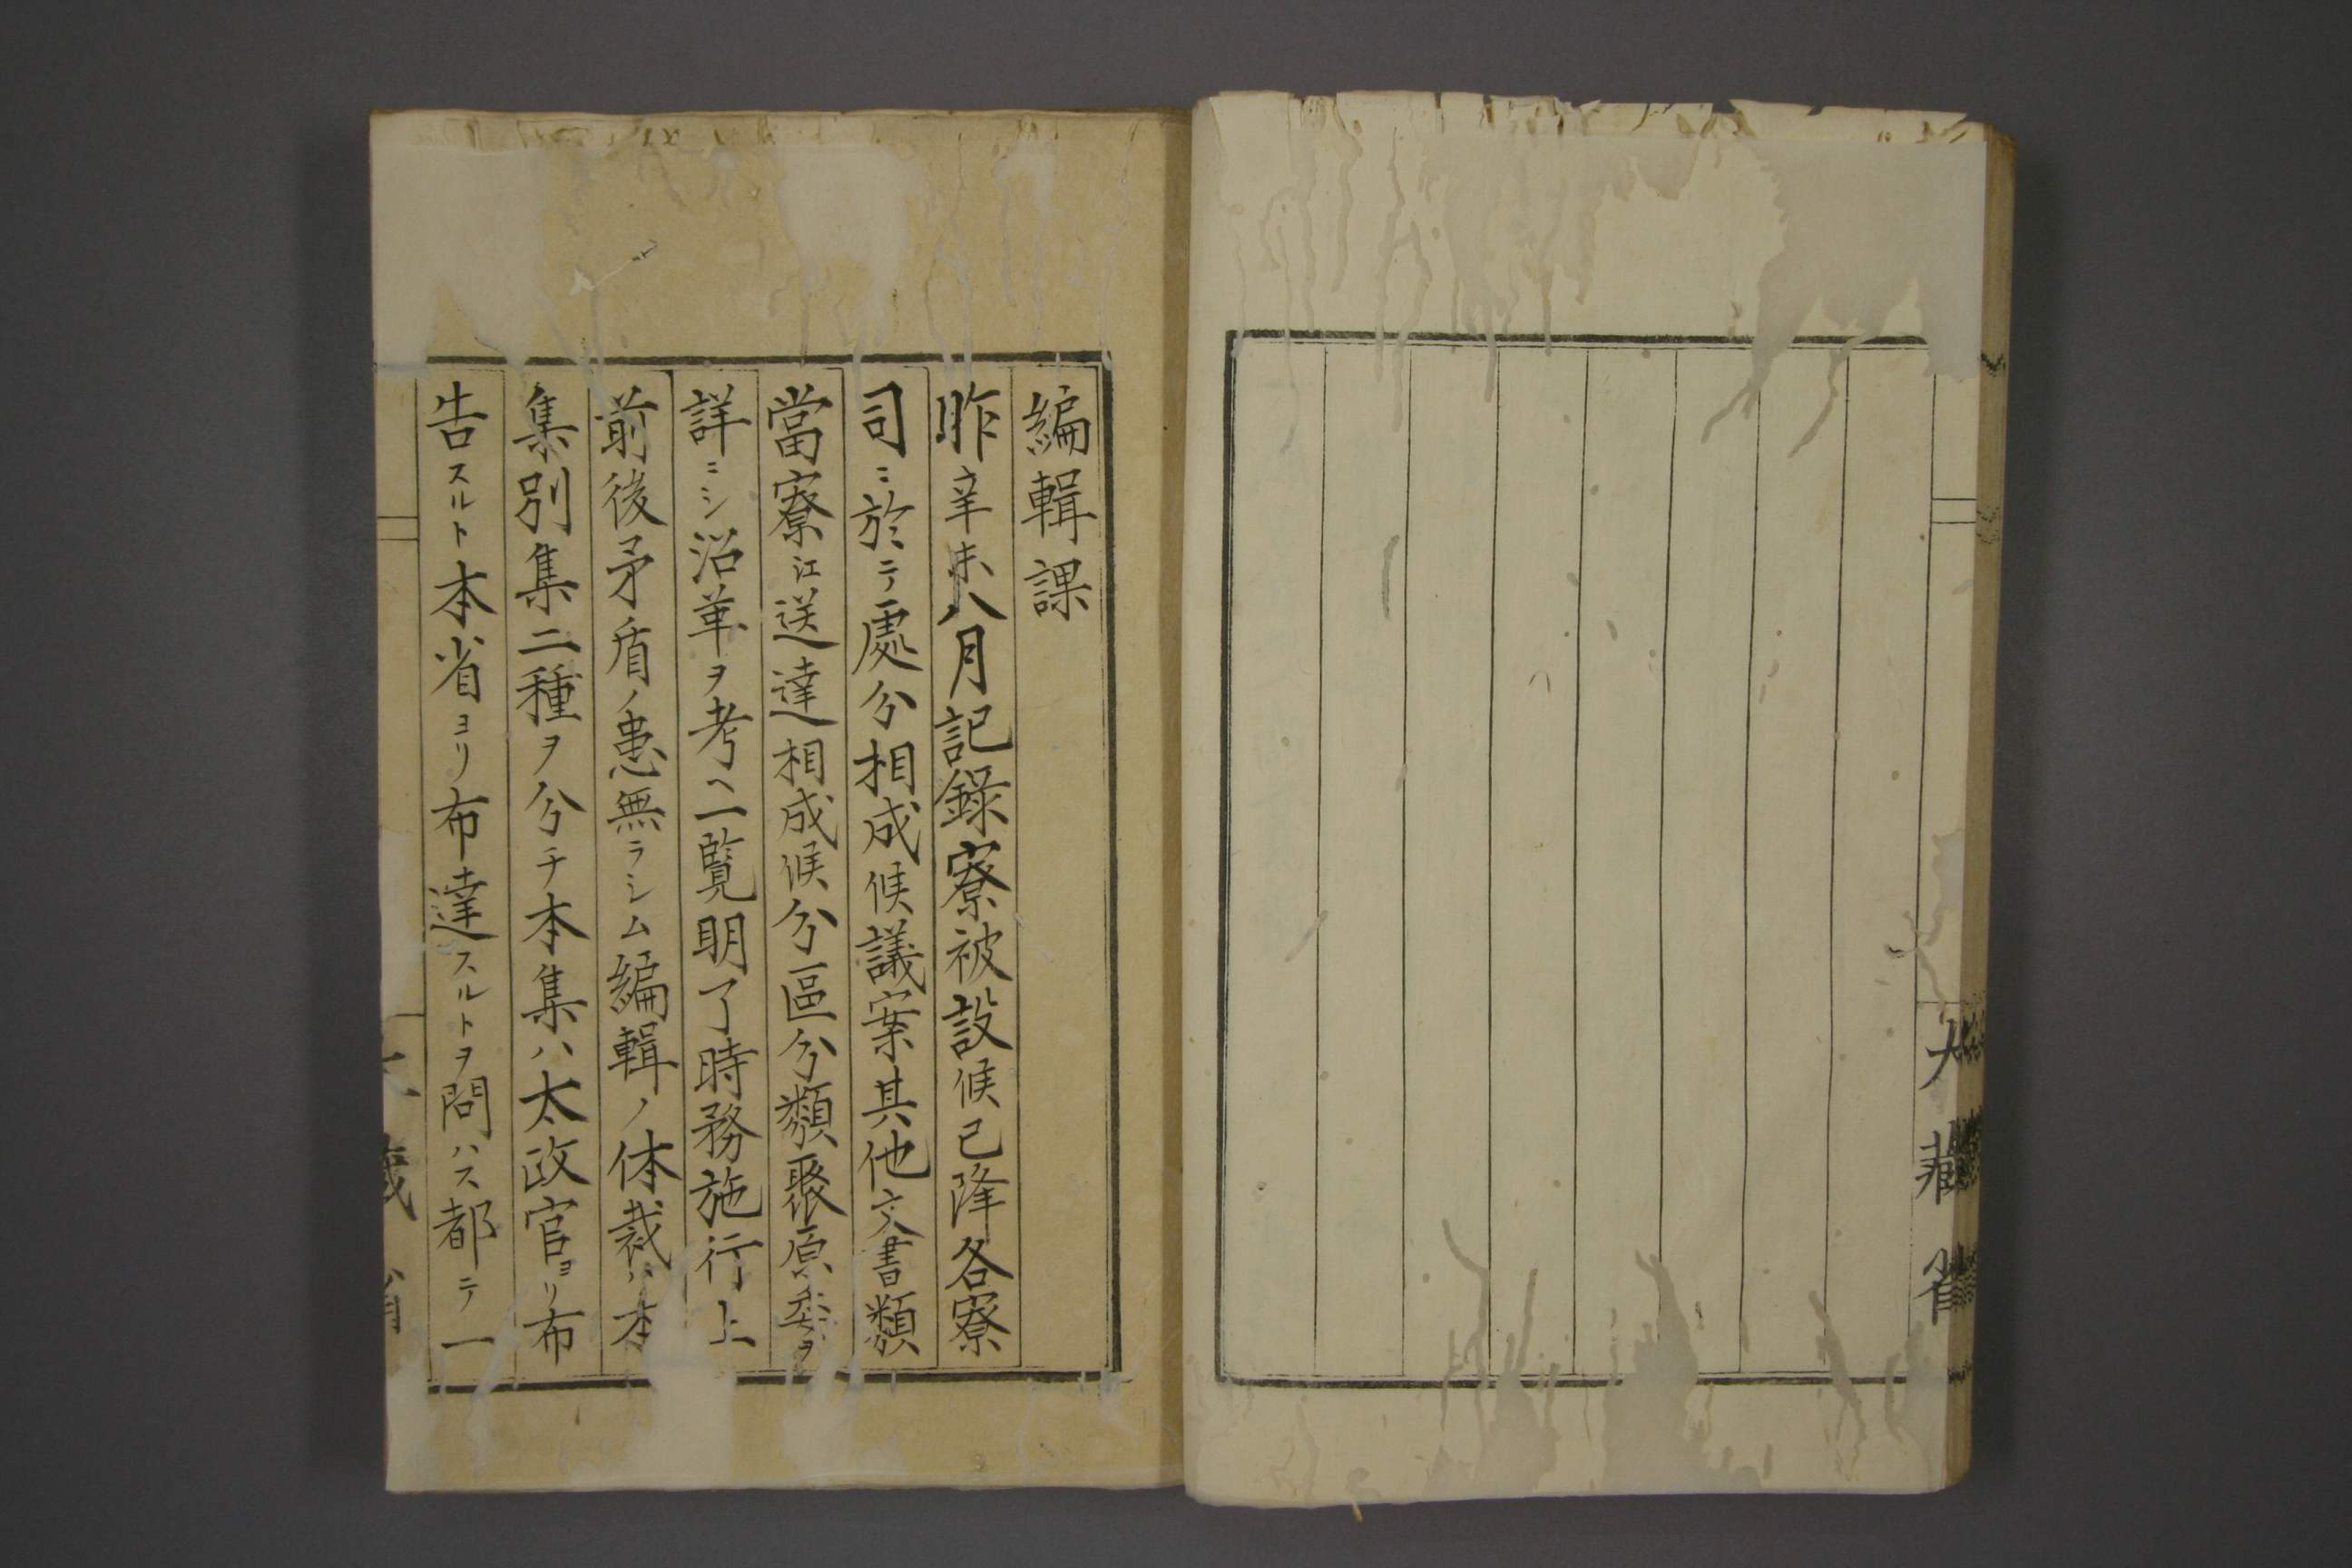 大藏省
編輯課
昨辛未八月記錄寮被設候已降各寮
司ニ於テ處分相成候議案其他文書類
當寮江送達相成候分區分類聚原委ヲ
詳ニシ沿革ヲ考ヘ一覧明了時務施行上
前後矛盾ノ患無ラシム編輯ノ体裁ハ本
集別集二種ヲ分チ本集ハ太政官ヨリ布
告スルト本省ヨリ布達スルトヲ問ハス都テ一